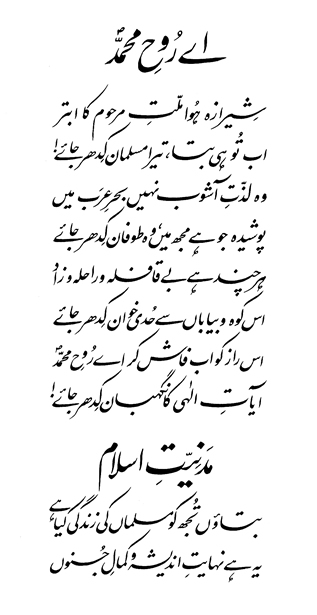 اے رُوحِ محمدؐ
شِیرازہ ہُوا ملّتِ مرحوم کا ابتر
اب تُو ہی بتا، تیرا مسلمان کِدھر جائے!
وہ لذّتِ آشوب نہیں بحرِ عرَب میں
پوشیدہ جو ہے مجھ میں، وہ طوفان کِدھر جائے
ہرچند ہے بے قافلہ و راحلہ و زاد
اس کوہ و بیاباں سے حُدی خوان کِدھر جائے
اس راز کو اب فاش کر اے رُوحِ محمدؐ
آیاتِ الٰہی کا نگہبان کِدھر جائے!
مَدنِیّتِ اسلام
بتاؤں تُجھ کو مسلماں کی زندگی کیا ہے
یہ ہے نہایتِ اندیشہ و کمالِ جُنوں